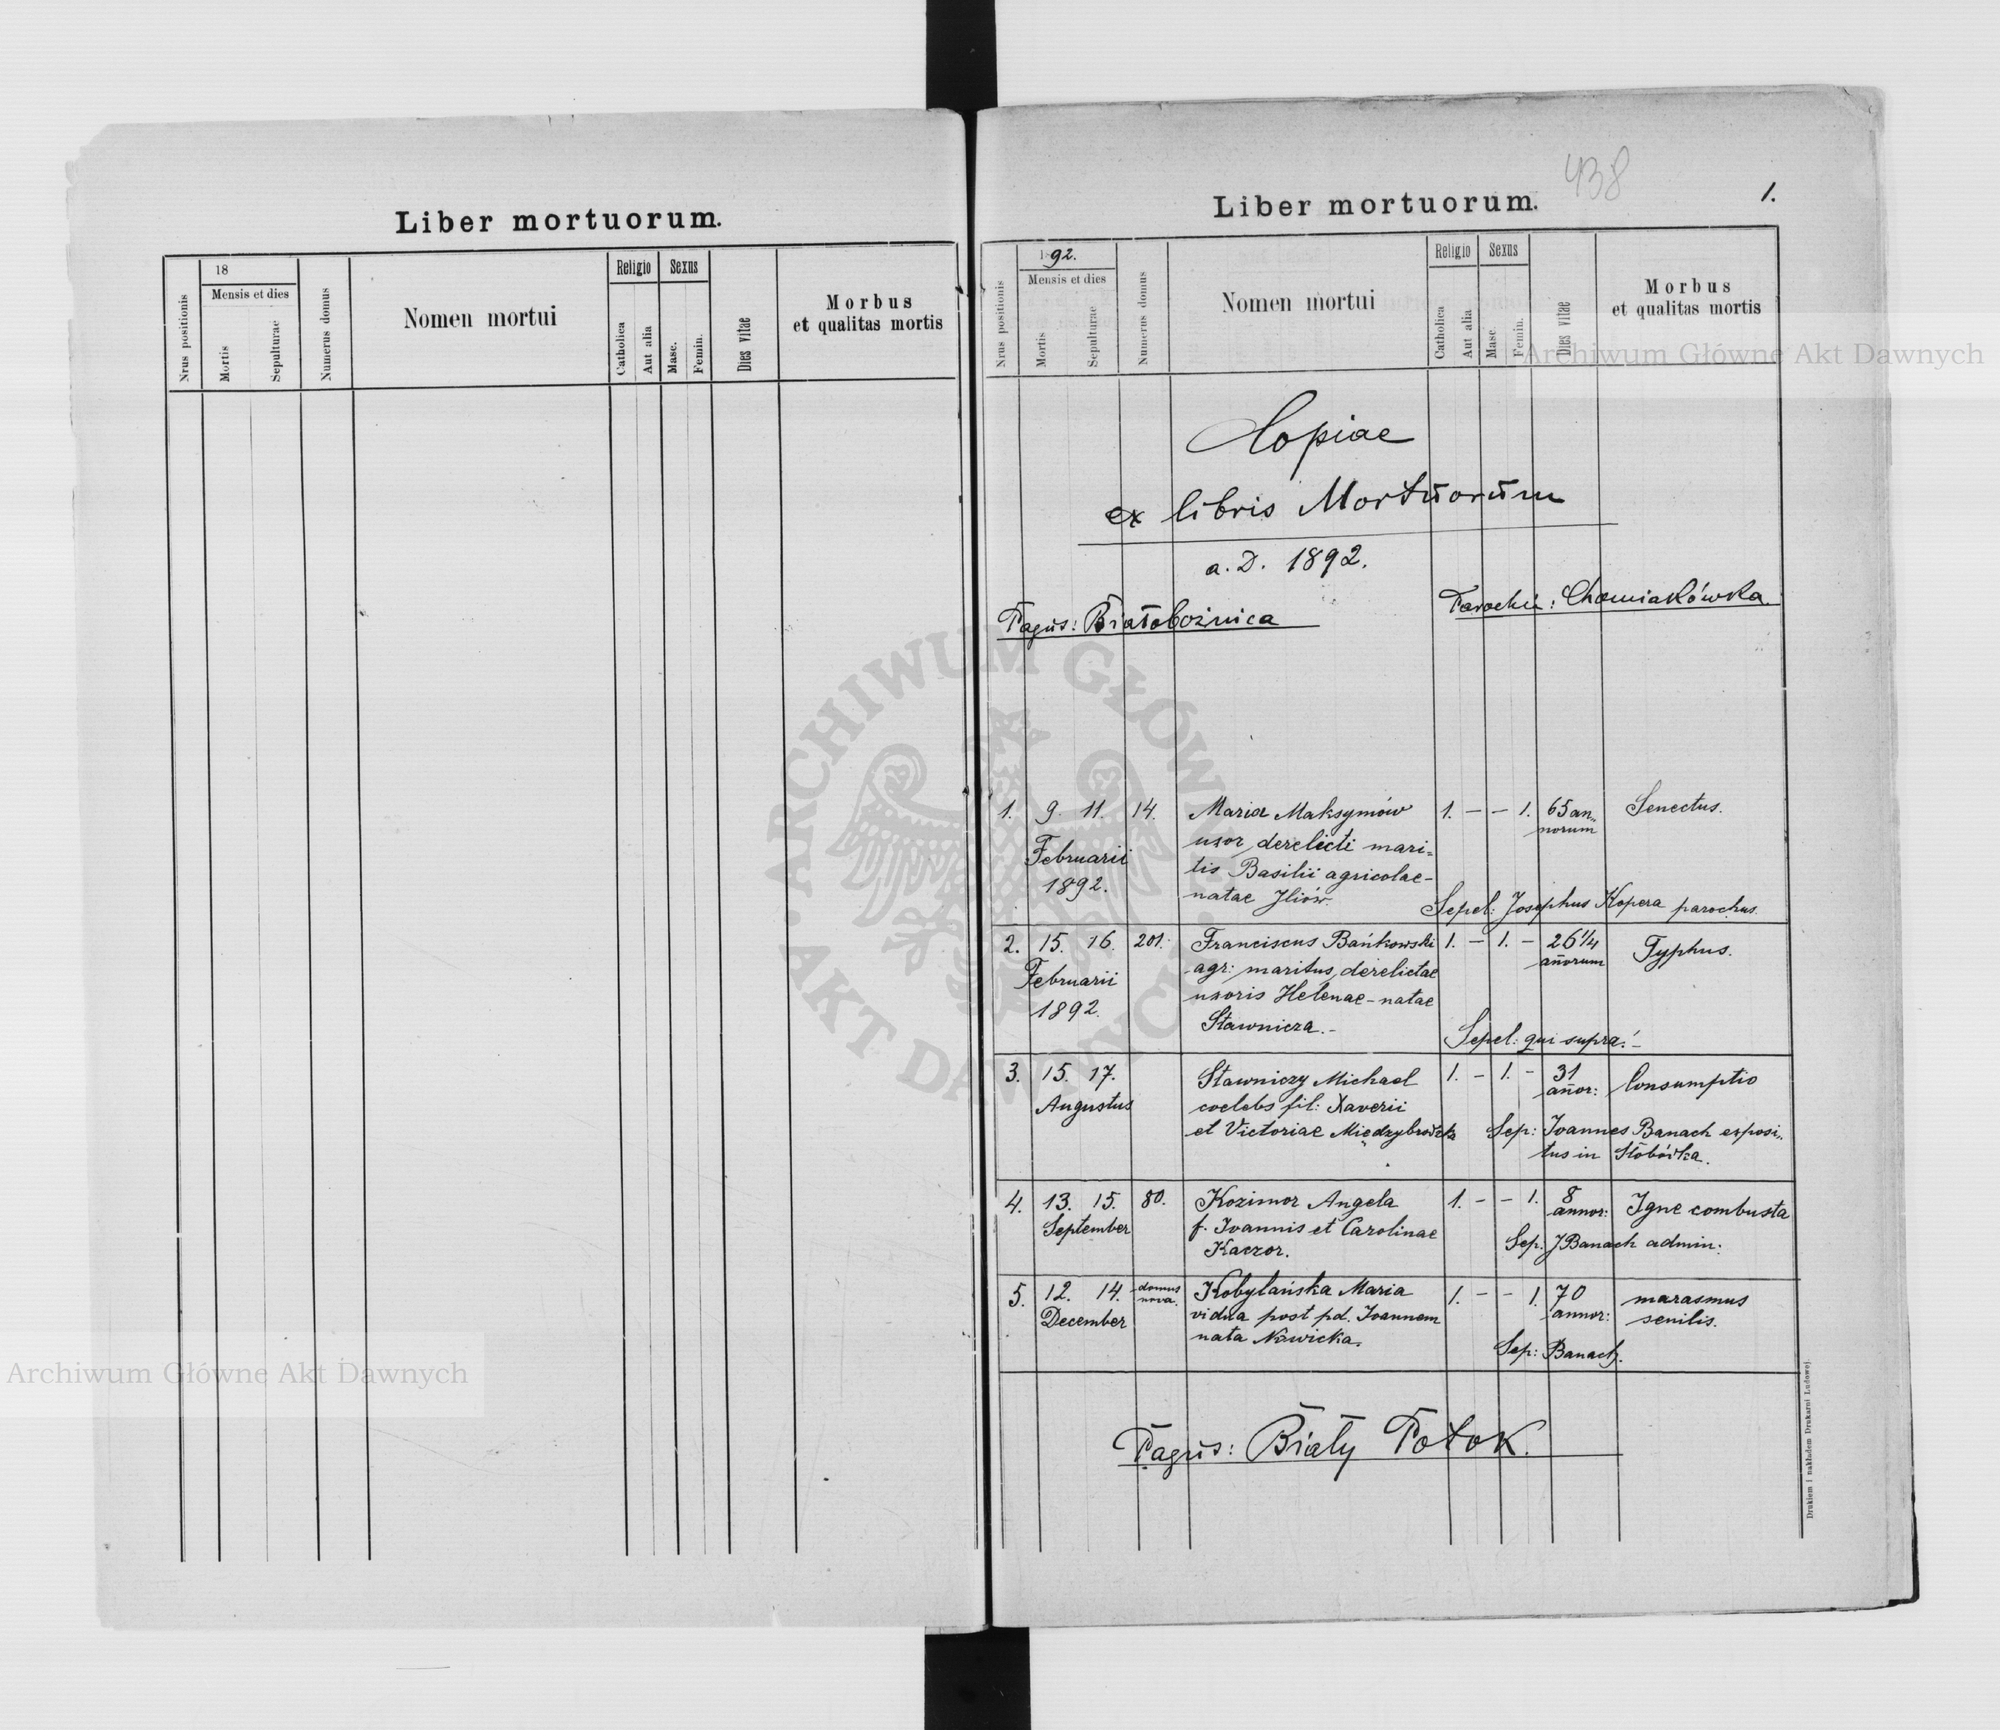 Liber mortuorum.
Nrus positionis
18
Mensis et dies
Mortis
Sepulturae
Numerus domus
Nomen mortui
Religio
Catholica
Aut alia
Sexus
Masc.
Femin.
Dies vitae
Morbus
et qualitas mortis
438
Liber mortuorum.
1.
Nrus positionis
1892.
Mensis et dies
Mortis
Sepulturae
Numerus domus
Nomen mortui
Religio
Catholica
Aut alia
Sexus
Masc
Femin.
Dies vitae
Morbus
et qualitas mortis
Copiae
ex libris Mortuorum
a. D. 1892.
Pagus: Białobożnica
Parochia: Chomiakówka
1. 9. 11. 14. Maria Maksymów 1. – – 1. 65 an„ Senectus.
norum
Februarii uxor derelicti mari=
1892. tis Basilii agricolae–
natae Iliów.
Sepel: Josephus Kopera parochus.
2. 15. 16. 201. Franciscus Bańkowski 1. – 1. – 26 1/4 Typhus.
Februarii agr: maritus, derelictae
añorum
1892. uxoris Helenae – natae
Stawnicza. –
Sepel: qui supra! –
3. 15. 17. Stawniczy Michael 1. – 1. – 31 Consumptio
añor:
Augustus coelebs fil: Xaverii
et Victoriae
Sep: Joannes Banach exposi„
tus in Słobódka.
4. 13. 15. 80. Kozimor Angela 1. – – 1. 8 Igne combusta
annor:
September f. Joannis et Carolinae
Kaczor.
Sep. J Banach admin:
5. 12. 14. domus Kobylańska Maria 1. – – 1. 70 marasmus
nova.
December vidua post pd. Joannem annor: senilis.
nata Nowicka.
Sep: Banach.
Pagus: Biały Potok.
Drukiem i nakładem Drukarni Ludowej.
Archiwum Główne Akt Dawnych
Archiwum Główne Akt Dawnych
ARCHIWUM GŁÓWNE AKT DAWNYCH